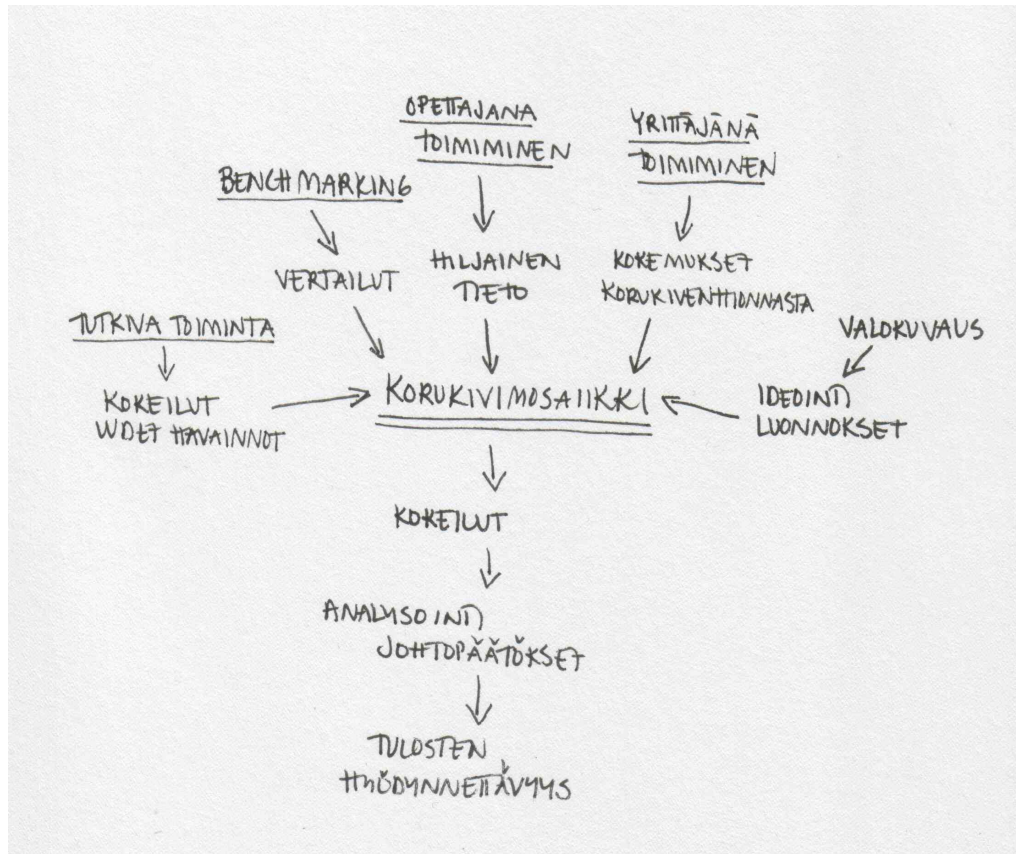 OPETTAJANA
TOIMIMINEN
YRITTÄJÄNÄ
TOIMIMINEN
BENCHMARKING
VERTAILUT
HILJAINEN
TIETO
KOKEMUKSET
KORUKIVENHIONNASTA
TUTKIVA TOIMINTA
VALOKUVAUS
KOKEILUT
HAVAINNOT
KORUKIVIMOSAIIKKI
IDEOINTI
LUONNOKSET
KOKEILUT
ANALYSOINTI
JOHTOPÄÄTÖKSET
TULOSTEN
HYÖDYNNETTÄVYYS